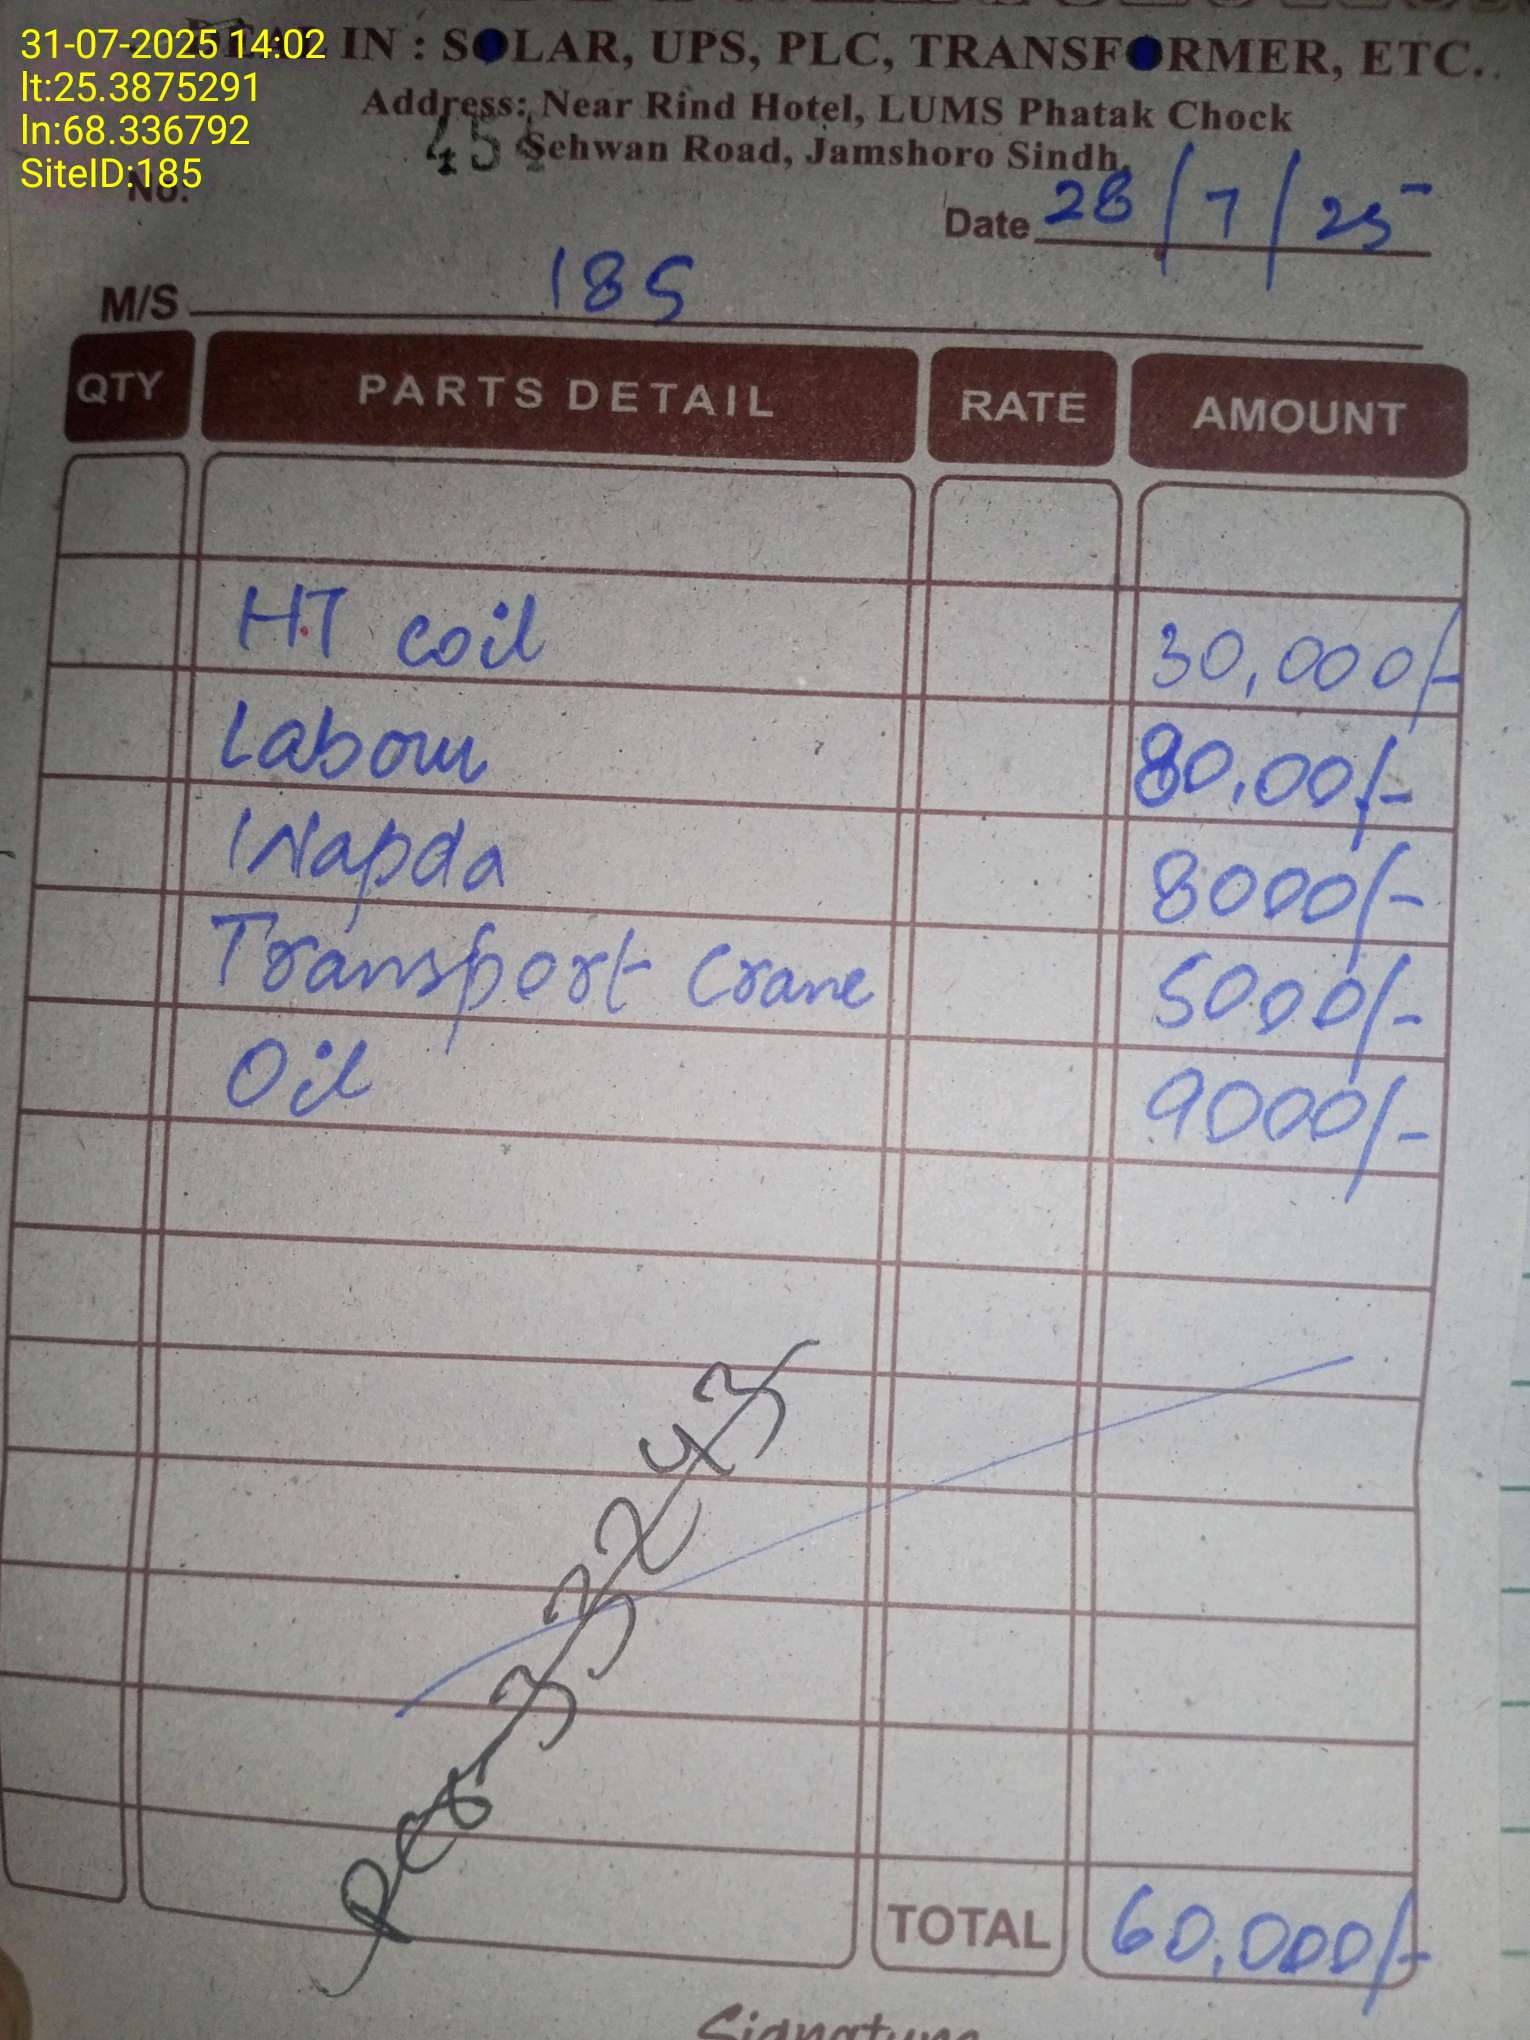 31-07-2025 14:02
lt:25.3875291
ln:68.336792
SiteID:185
DEAL IN : SOLAR, UPS, PLC, TRANSFORMER, ETC.
Address: Near Rind Hotel, LUMS Phatak Chock
Sehwan Road, Jamshoro Sindh.
No.
Date 28/7/25
M/S 185
QTY PARTS DETAIL RATE AMOUNT
H.T coil 30,000/-
Labour 80,00/-
Wapda 8000/-
Transport Crane 5000/-
Oil 9000/-
33243
TOTAL 60,000/-
Signature